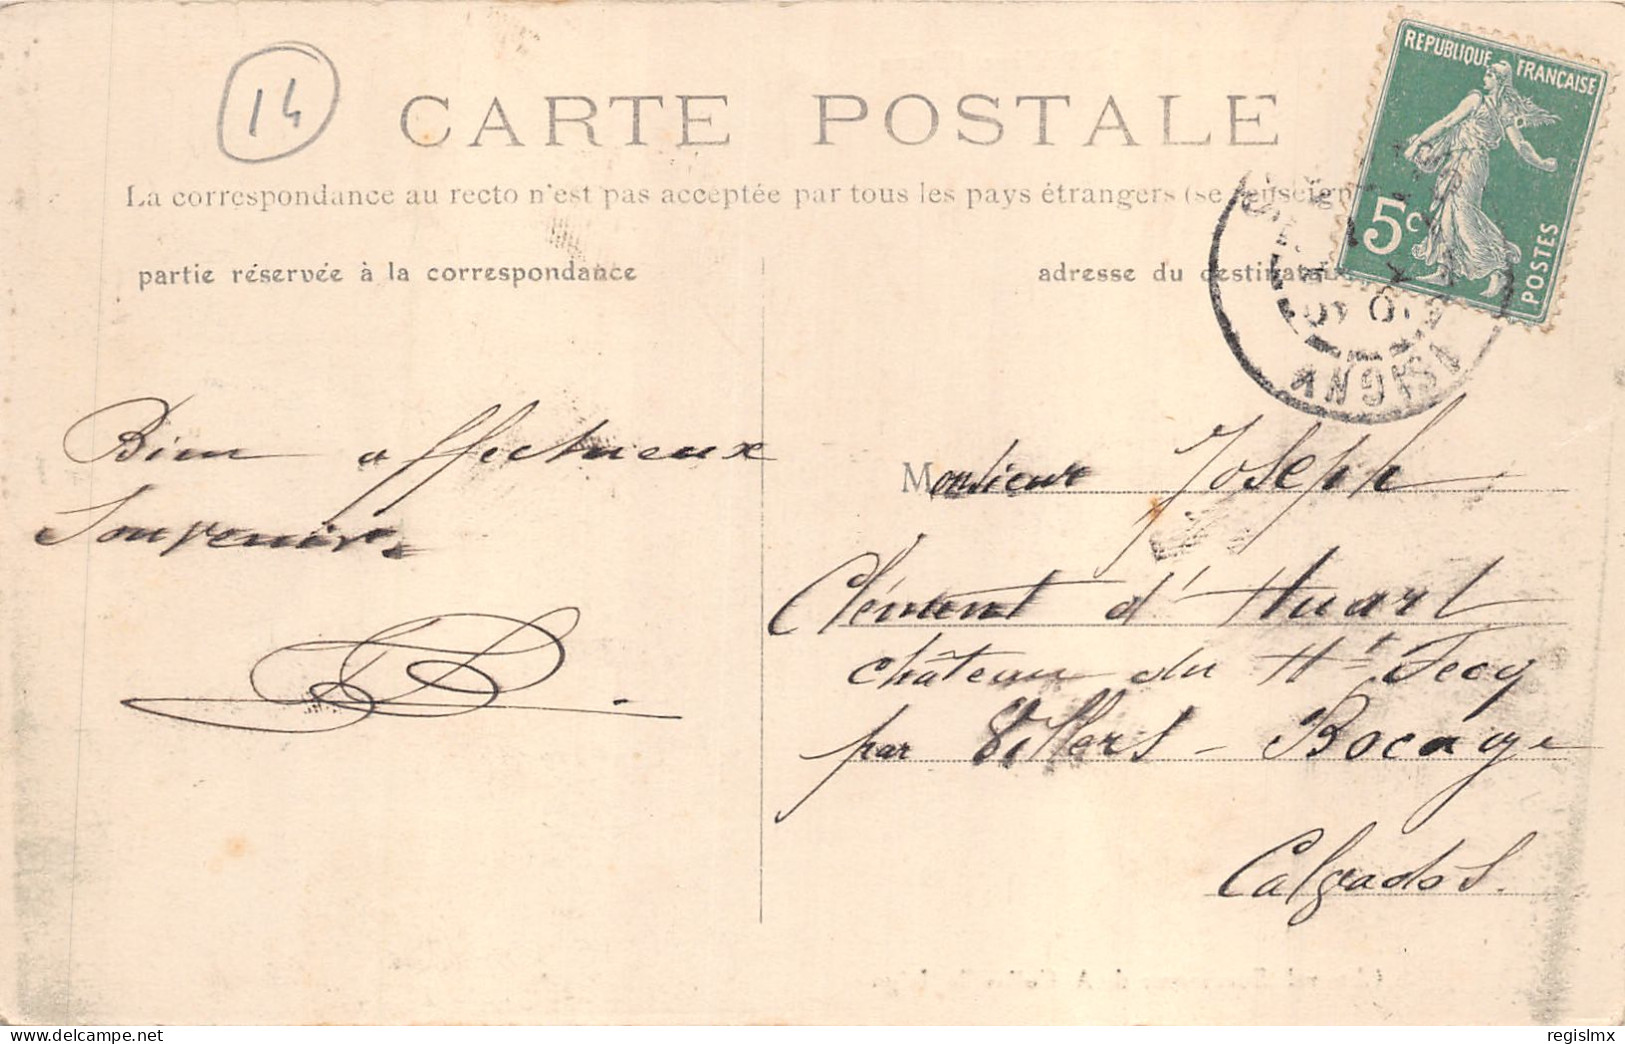 14
CARTE POSTALE
REPUBLIQUE FRANÇAISE
5c
POSTES
La correspondance au recto n'est pas acceptée par tous les pays étrangers (se renseign
partie réservée à la correspondance
adresse du destinataire
ISIGNY
Bien affectueux
Souvenir.
Monsieur Joseph
Clément d'Huart
château du Ht Fecq
par Villers-Bocage
Calvados.
regislmx